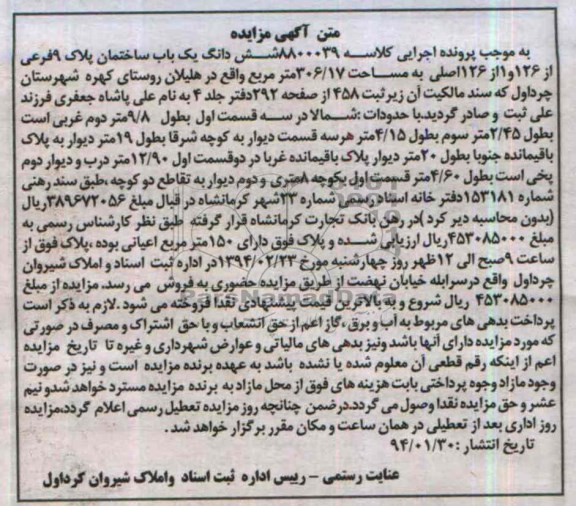 متن آگهی مزایده
به موجب پرونده اجرایی کلاسه ۸۸۰۰۰۳۹شش دانگ یک باب ساختمان پلاک ۹فرعی
از ۱۲۶و۱از ۱۲۶اصلی به مساحت ۳۰۶/۱۷متر مربع واقع در هلیلان روستای کهره شهرستان
چرداول که سند مالکیت آن زیر ثبت ۴۵۸ از صفحه ۲۹۲دفتر جلد ۴ به نام علی پاشاه جعفری فرزند
علی ثبت و صادر گردید.با حدودات :شمالا در سه قسمت اول بطول ۹/۸متر دوم غربی است
بطول ۲/۴۵متر سوم بطول ۴/۱۵متر هرسه قسمت دیوار به کوچه شرقا بطول ۱۹متر دیوار به پلاک
باقیمانده جنوبا بطول ۲۰متر دیوار پلاک باقیمانده غربا در دوقسمت اول ۱۲/۹۰متر درب و دیوار دوم
پخی است بطول ۴/۶۰متر قسمت اول بکوچه ۸متری و دوم دیوار به تقاطع دو کوچه ،طبق سند رهنی
شماره ۱۵۳۱۸۱دفتر خانه اسناد رسمی شماره ۲۳شهر کرمانشاه در قبال مبلغ ۳۸۹۶۷۲۰۵۶ریال
(بدون محاسبه دیر کرد )در رهن بانک تجارت کرمانشاه قرار گرفته طبق نظر کارشناس رسمی به
مبلغ ۴۵۳۰۸۵۰۰۰ریال ارزیابی شده و پلاک فوق دارای ۱۵۰متر مربع اعیانی بوده ،پلاک فوق از
ساعت ۹صبح الی ۱۲ظهر روز چهارشنبه مورخ ۱۳۹۴/۰۲/۲۳در اداره ثبت اسناد و املاک شیروان
چرداول واقع درسرابله خیابان نهضت از طریق مزایده حضوری به فروش می رسد. مزایده از مبلغ
۴۵۳۰۸۵۰۰۰ ریال شروع و به بالاترین قیمت پیشنهادی نقدا فروخته می شود .لازم به ذکر است
پرداخت بدهی های مربوط به آب و برق ،گاز اعم از حق انشعاب و یا حق اشتراک و مصرف در صورتی
که مورد مزایده دارای آنها باشد ونیز بدهی های مالیاتی و عوارض شهرداری و غیره تا تاریخ مزایده
اعم از اینکه رقم قطعی آن معلوم شده یا نشده باشد به عهده برنده مزایده است و نیز در صورت
وجود مازاد وجوه پرداختی بابت هزینه های فوق از محل مازاد به برنده مزایده مسترد خواهد شدو نیم
عشر و حق مزایده نقدا وصول می گردد.درضمن چنانچه روز مزایده تعطیل رسمی اعلام گردد،مزایده
روز اداری بعد از تعطیلی در همان ساعت و مکان مقرر برگزار خواهد شد .
تاریخ انتشار :۹۴/۰۱/۳۰
عنایت رستمی – رییس اداره ثبت اسناد واملاک شیروان کرداول